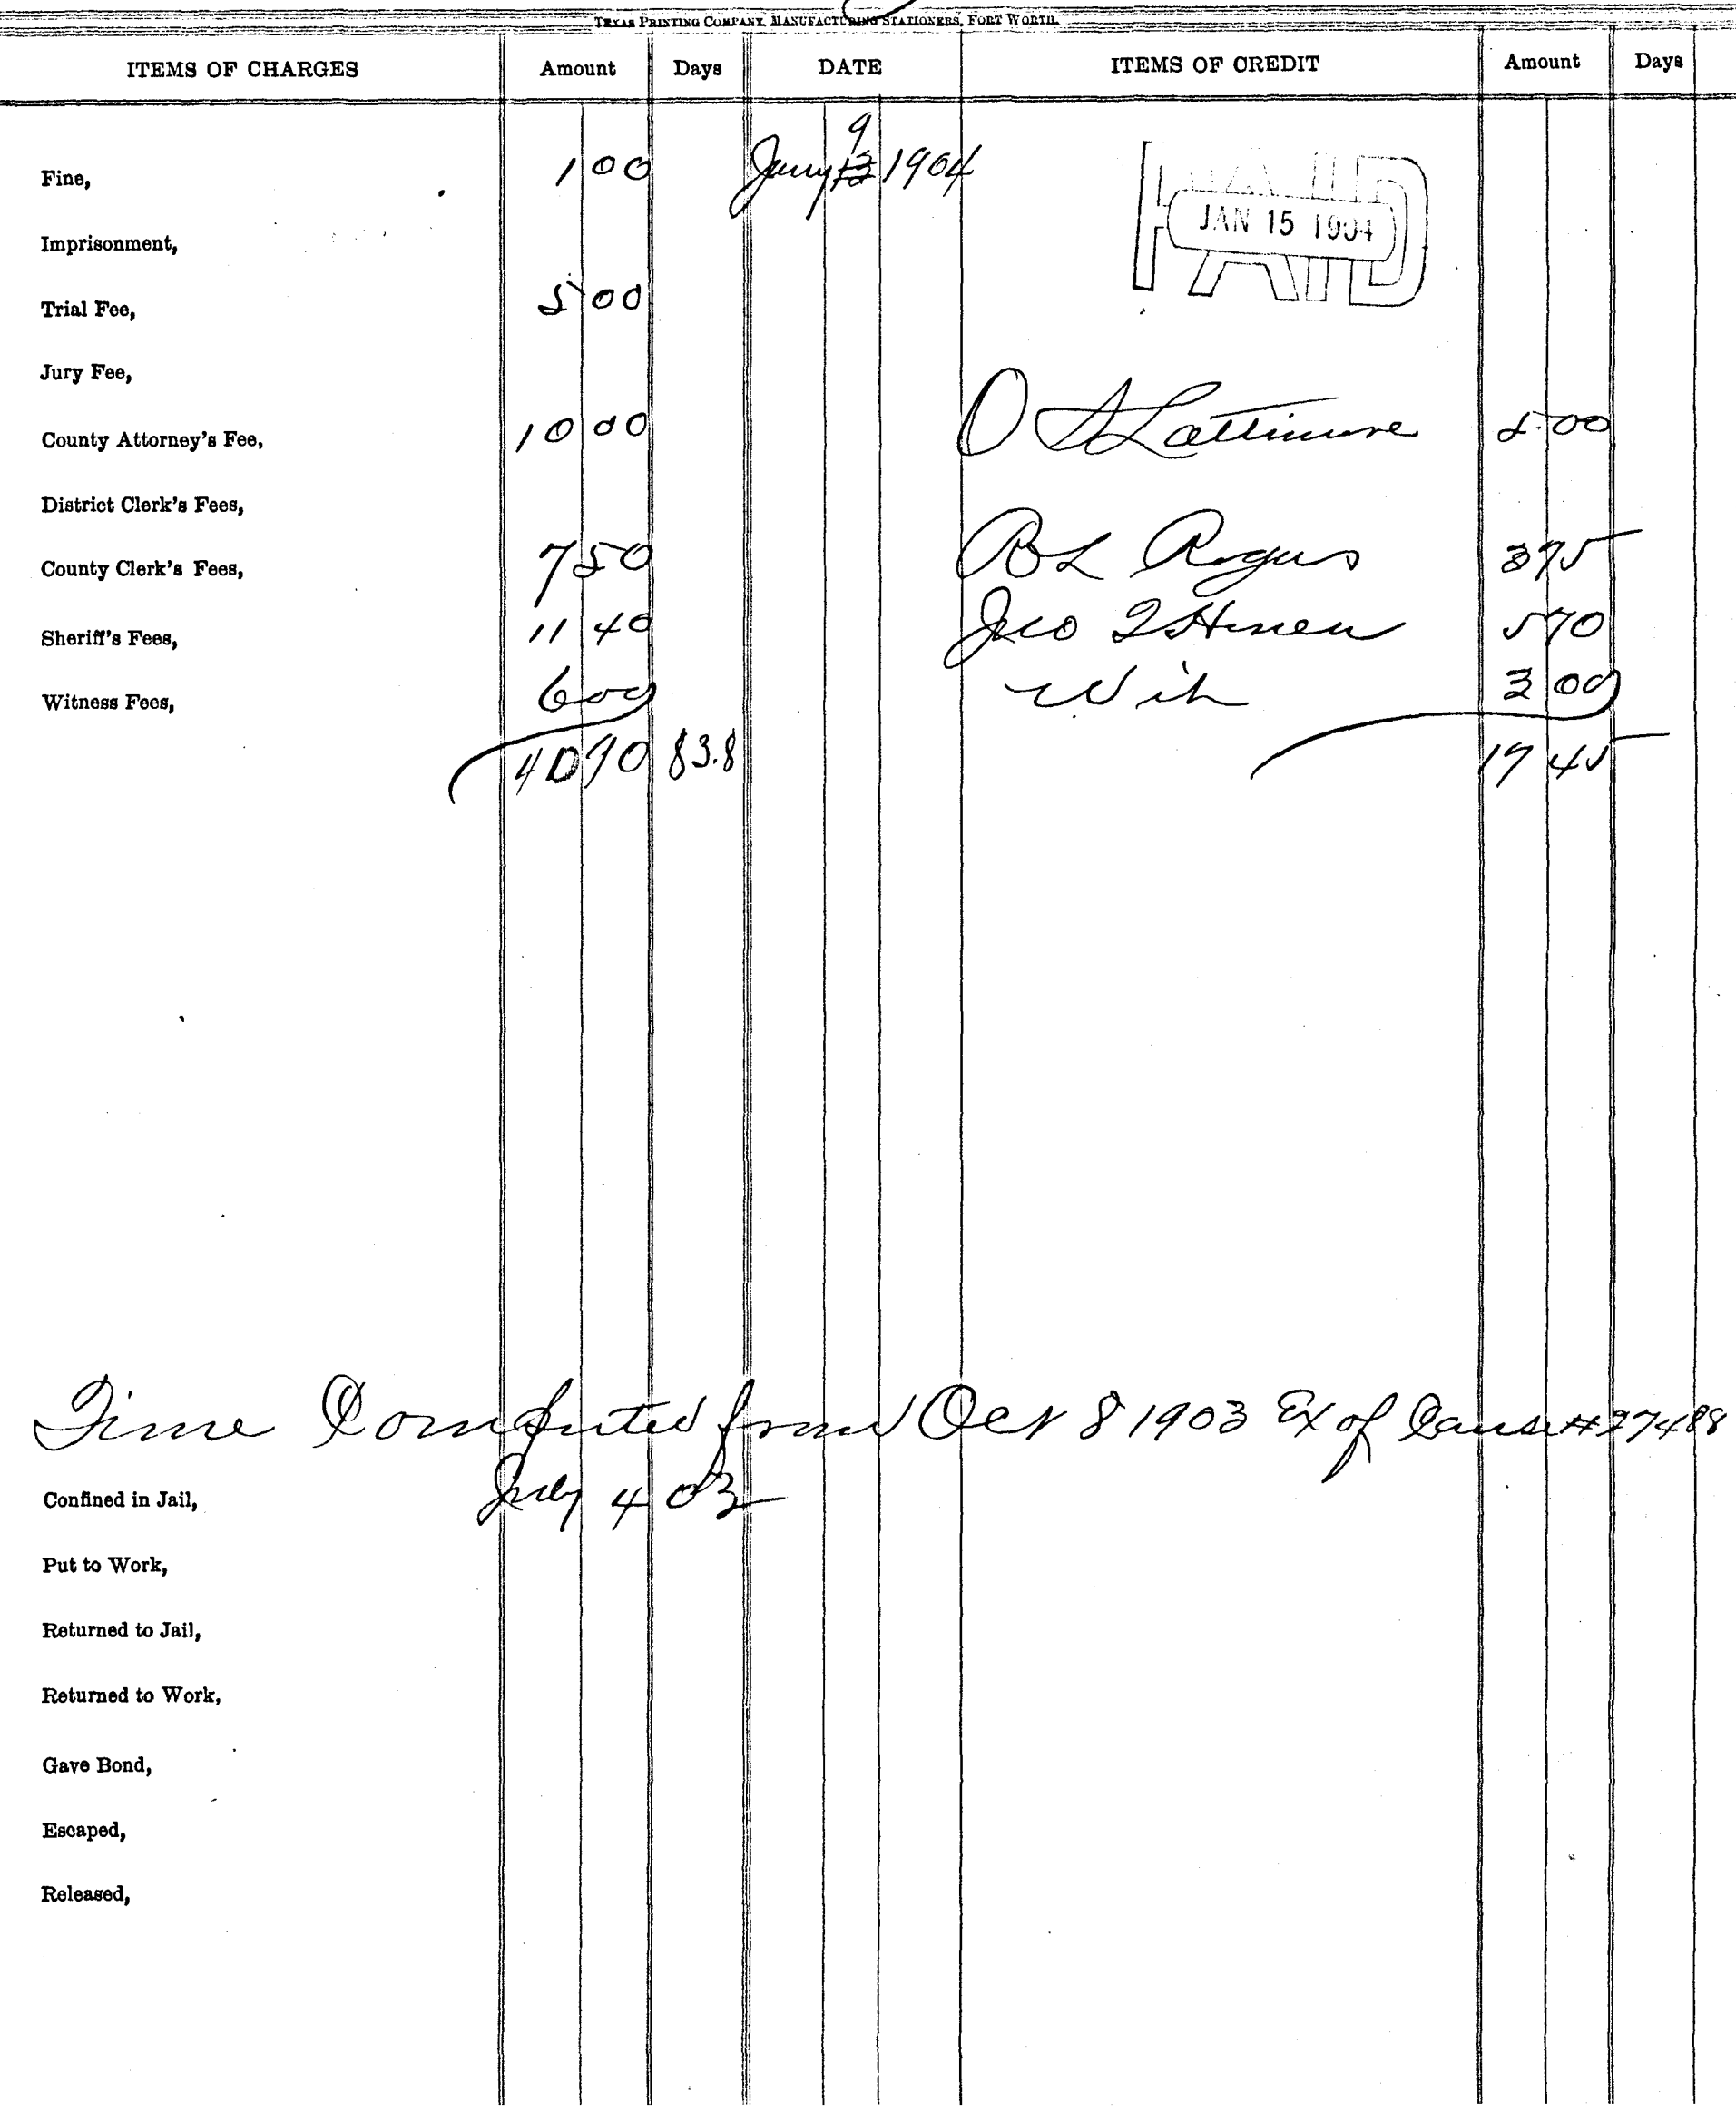 TEXAS PRINTING COMPANY, MANUFACTURING STATIONERS, FORT WORTH.
ITEMS OF CHARGES Amount Days DATE ITEMS OF CREDIT Amount Days
9
Fine, 1 00 Jany 13 1904 PAID
JAN 15 1904
Imprisonment,
Trial Fee, 5 00
Jury Fee,
County Attorney's Fee, 10 00 O S Lattimore 5.00
District Clerk's Fees,
County Clerk's Fees, 7 50 R L Rogers 3 75
Sheriff's Fees, 11 40 Jno T Honea 5 70
Witness Fees, 6 00 Wit 3 00
40 90 83.8 17 45
Time Computed from Oct 8 1903 Ex of Cause # 27488
Confined in Jail, July 4 03
Put to Work,
Returned to Jail,
Returned to Work,
Gave Bond,
Escaped,
Released,